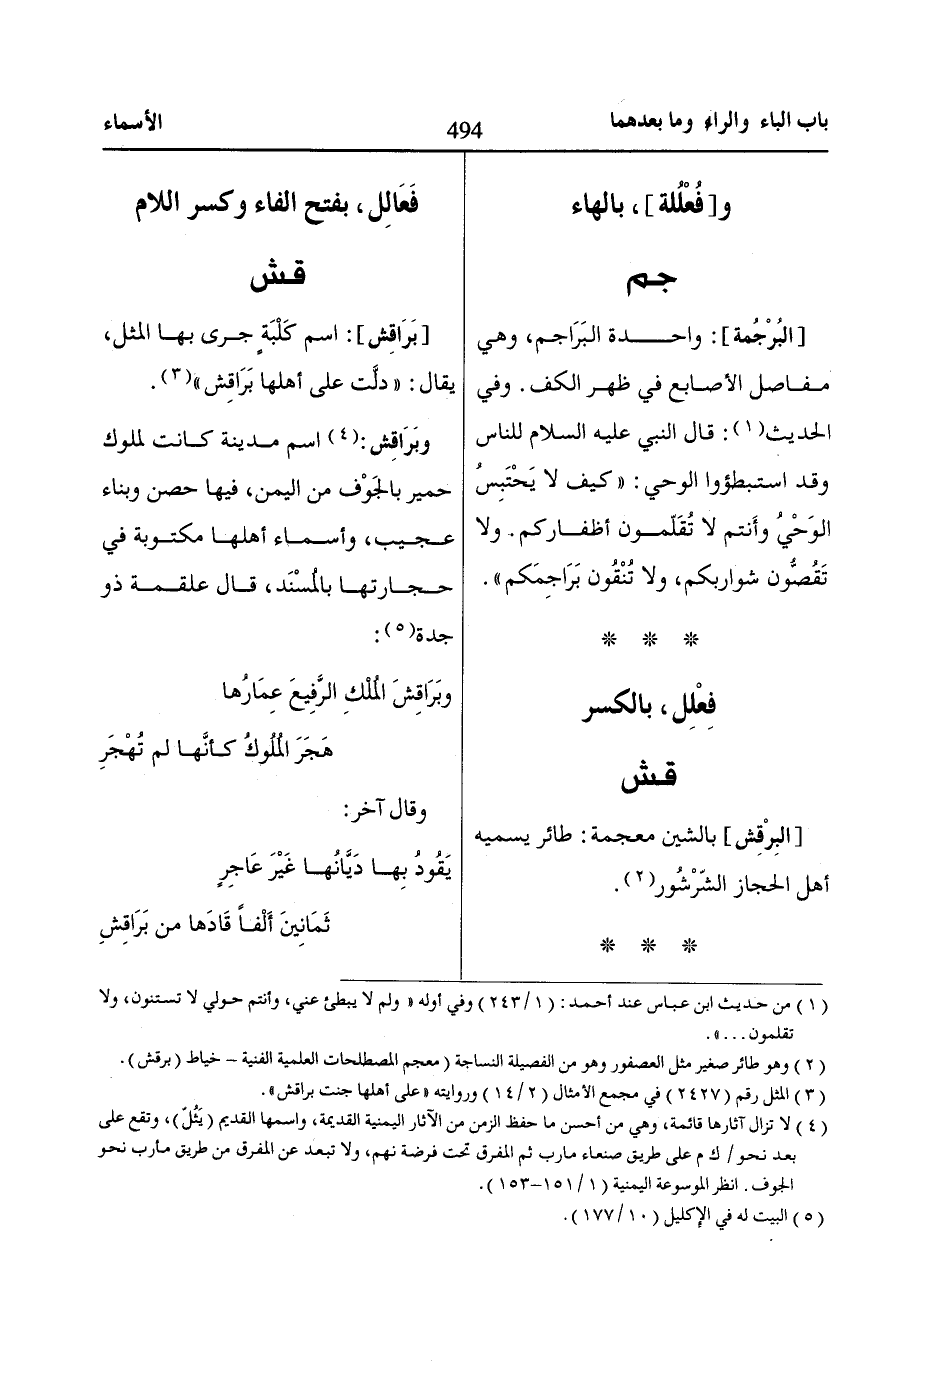 باب الباء والراء وما بعدهما
494
الأسماء
و[فُعْلُلة]، بالهاء
جم
[البُرْجُمة]: واحـــــدة البَرَاجم، وهي
مفاصل الأصابع في ظهر الكف. وفي
الحديث(١): قال النبي عليه السلام للناس
وقد استبطؤوا الوحي: «كيف لا يَحْتَبِسُ
الوَحْيُ وأنتم لا تُقَلّمون أظفاركم. ولا
تَقُصُّون شواربكم، ولا تُنْقُون بَرَاجِمَكم».
* * *
فِعْلِل، بالكسر
قش
[البِرْقِش] بالشين معجمة: طائر يسميه
أهل الحجاز الشّرْشُور(٢).
* * *
فَعَالِل، بفتح الفاء وكسر اللام
قش
[بَرَاقِش]: اسم كَلْبَةٍ جرى بها المثل،
يقال: «دلَّت على أهلها بَرَاقِش»(٣).
وبَرَاقِش:(٤) اسم مدينة كانت لملوك
حمير بالجَوْف من اليمن، فيها حصن وبناء
عجيب، وأسماء أهلها مكتوبة في
حجارتها بالمُسْنَد، قال علقمة ذو
جدة(٥):
وبَرَاقِشَ المُلْكِ الرَّفِيعَ عِمَارُها
هَجَرَ المُلُوكُ كأنَّها لم تُهْجَرِ
وقال آخر:
يَقُودُ بِها دَيَّانُها غَيْرَ عَاجِرٍ
ثَمَانِينَ أَلْفاً قَادَها من بَرَاقِشِ
(١) من حديث ابن عباس عند أحمد: (٢٤٣/١) وفي أوله «ولم لا يبطئ عني، وأنتم حولي لا تستنون، ولا
تقلمون...».
(٢) وهو طائر صغير مثل العصفور وهو من الفصيلة النساجة (معجم المصطلحات العلمية الفنية – خياط (برقش).
(٣) المثل رقم (٢٤٢٧) في مجمع الأمثال (١٤/٢) وروايته «على أهلها جنت براقش».
(٤) لا تزال آثارها قائمة، وهي من أحسن ما حفظ الزمن من الآثار اليمنية القديمة، واسمها القديم (يَثُلّ)، وتقع على
بعد نحو/ ك م على طريق صنعاء مارب ثم المفرق تحت فرضة نهم، ولا تبعد عن المفرق من طريق مأرب نحو
الجوف. انظر الموسوعة اليمنية (١/ ١٥١–١٥٣).
(٥) البيت له في الإكليل (١٧٧/١٠).